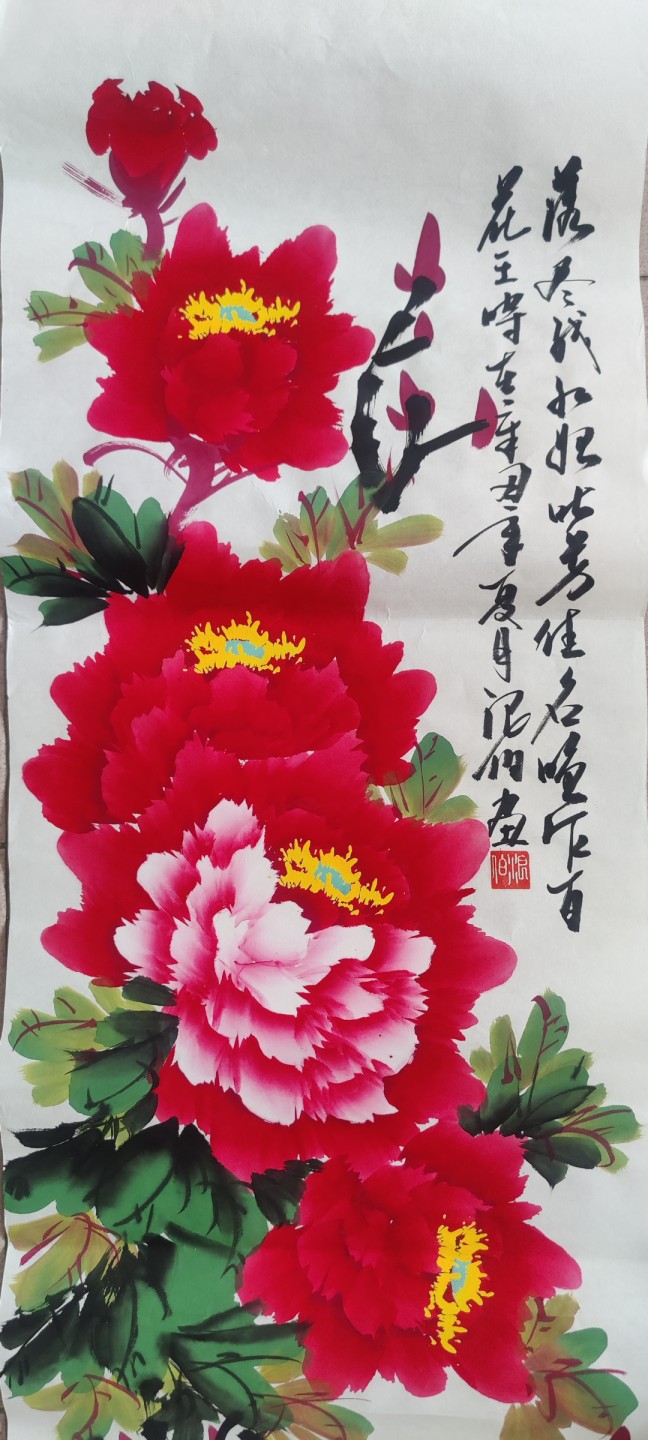 落尽残红始吐芳佳名唤作百
花王時在辛丑年夏月伯画